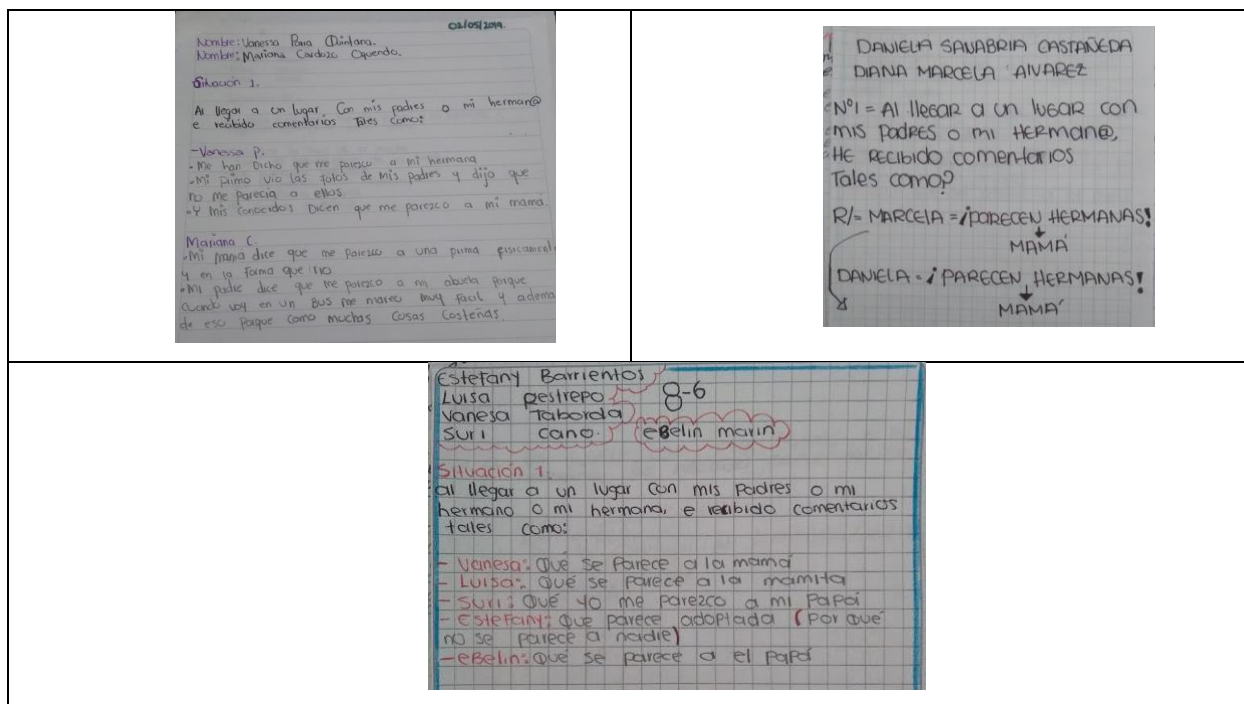 02/05/2019.
Nombre: Vanessa Parra Quintana.
Nombre: Mariana Cardozo Oquendo.
Situación 1.
Al llegar a un lugar Con mis padres o mi herman@
e recibido comentarios Tales como:
-Vanessa P.
- Me han Dicho que me parezco a mi hermana
- Mi primo vio las fotos de mis padres y dijo que
no me parecia a ellos.
- Y mis conocidos Dicen que me parezco a mi mamá.
Mariana C.
- Mi mamá dice que me parezco a una prima fisicament
y en la forma que rio
- Mi padre dice que me parezco a mi abuela porque
cuando voy en un Bus me mareo muy facil y adema
de eso porque como muchas cosas costeñas.
DANIELA SANABRIA CASTAÑEDA
DIANA MARCELA ALVAREZ
Nº1 = Al llegar a un lugar con
mis padres o mi herman@,
HE RECIBIDO comentarios
Tales como?
R/= MARCELA = ¡PARECEN HERMANAS!
MAMÁ
DANIELA = ¡PARECEN HERMANAS!
MAMÁ
Estefany Barrientos
Luisa Restrepo 8-6
Vanesa Taborda
Suri Cano. eBelin marin
Situación 1.
al llegar a un lugar con mis Padres o mi
hermano o mi hermana, e recibido comentarios
tales como:
- Vanesa: Qué se Parece a la mamá
- Luisa: Qué se parece a la mamita
- Suri: Qué yo me Parezco a mi Papá
- Estefany: Que parece adoptada (Por Qué
no se parece a nadie)
- eBelin: Qué se parece a el papá